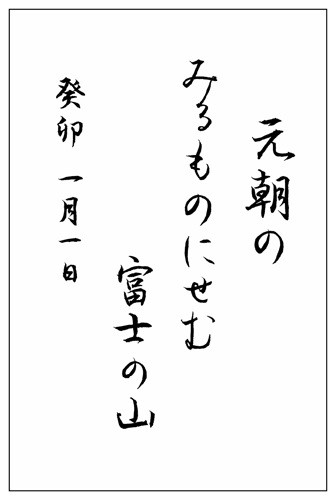 元朝の
みるものにせむ
富士の山
癸卯 一月一日